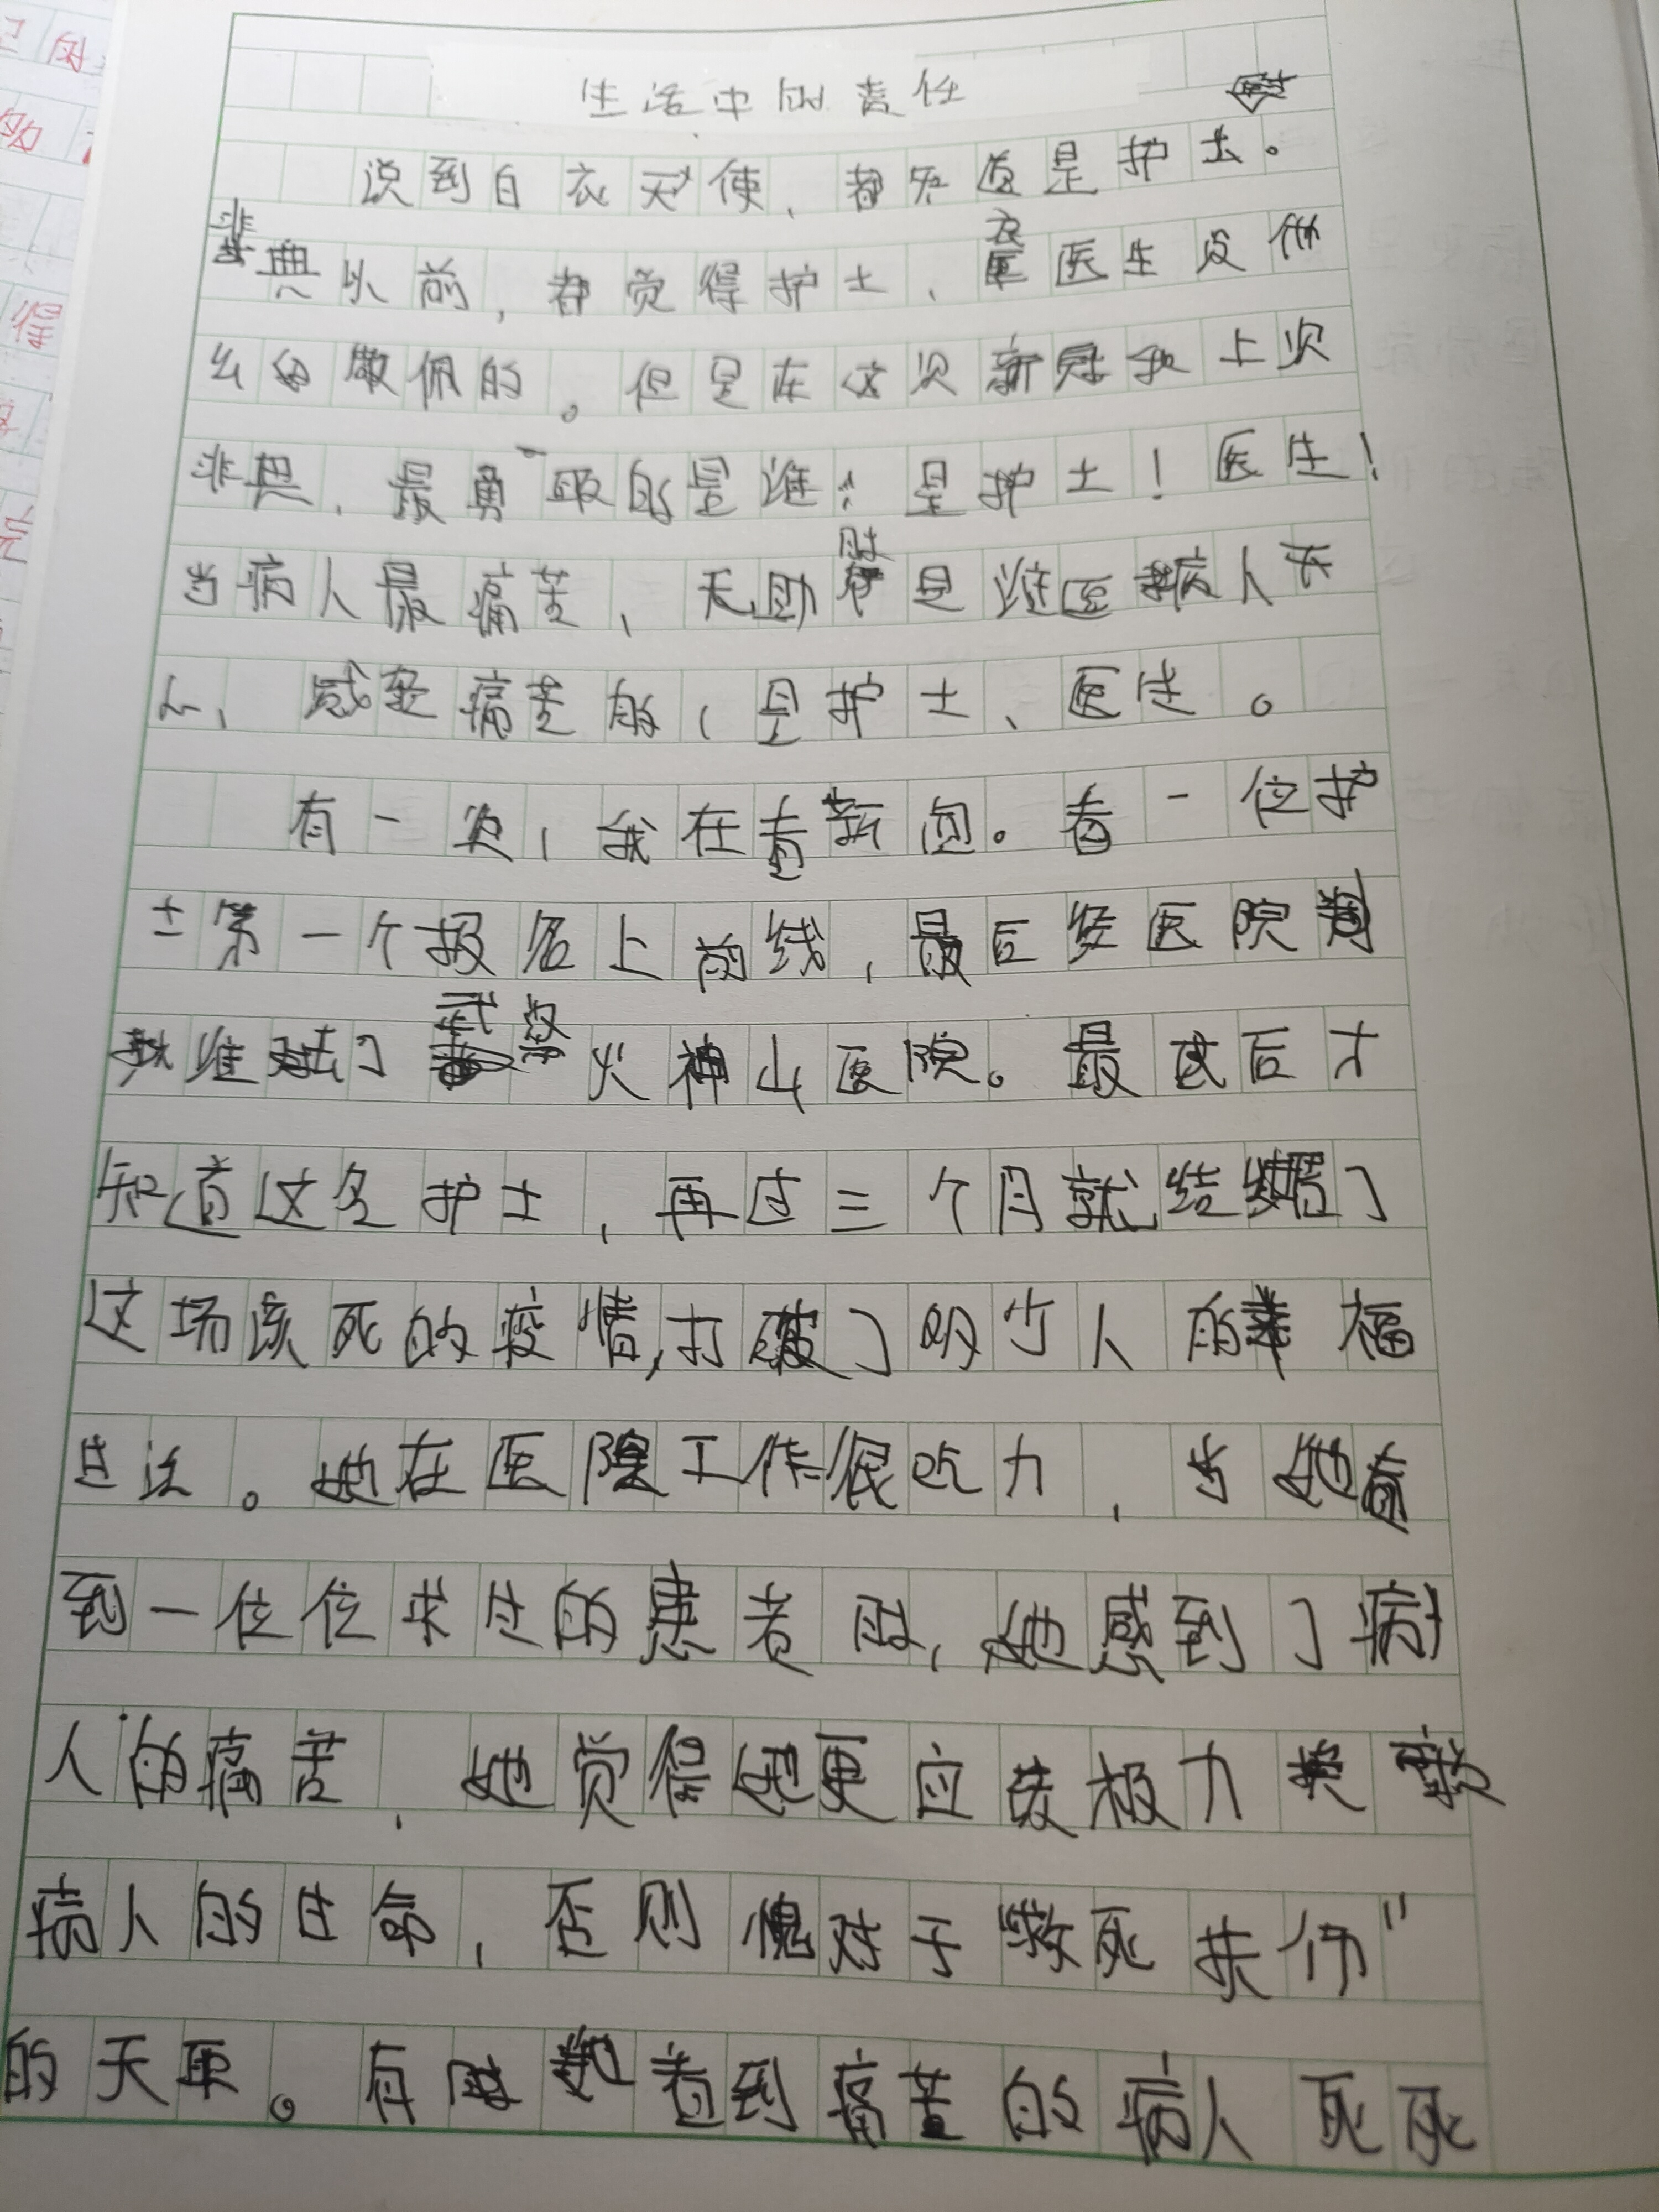 生活中的责任
说到白衣天使，都知道是护士。
非典以前，都觉得护士、医生没什
么敬佩的。但是在这次新冠和上次
非典，最勇敢的是谁：是护士！医生！
当病人最痛苦，无助时是谁医病人
感受痛苦的，是护士、医生。
有一次，我在看新闻。看一位护
士第一个报名上前线，最后经医院
批准去了武汉火神山医院。最后才
知道这名护士，再过三个月就结婚了
这场该死的疫情，打破了多少人的幸福
生活。她在医院工作很吃力，当她看
到一位位求生的患者时，她感到了病
人的痛苦，她觉得她更应该极力挽救
病人的生命，否则愧对于救死扶伤"
的天职。有时她看到痛苦的病人死死